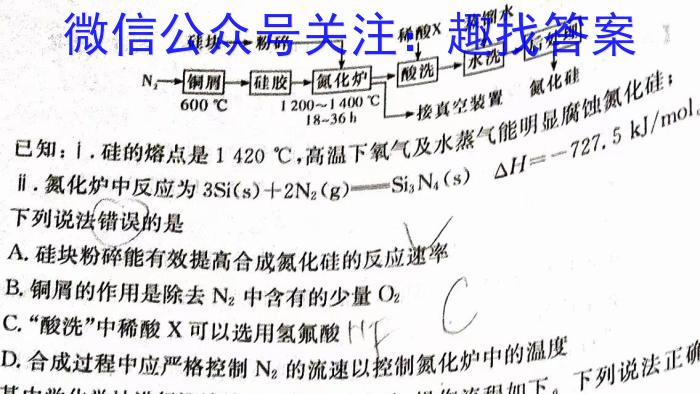 微信公众号关注：趣找答案
硅块 粉碎 稀酸X
N₂ 铜屑 硅胶 氮化炉 酸洗 水洗 氮化硅
600 ℃ 1200～1400 ℃ 接真空装置
18~36 h
已知：ⅰ.硅的熔点是1 420 ℃，高温下氧气及水蒸气能明显腐蚀氮化硅；
ⅱ.氮化炉中反应为3Si(s)+2N₂(g)══Si₃N₄(s) ΔH=-727.5 kJ/mol。
下列说法错误的是
A.硅块粉碎能有效提高合成氮化硅的反应速率
B.铜屑的作用是除去N₂中含有的少量O₂
C.“酸洗”中稀酸X可以选用氢氟酸 HF
C
D.合成过程中应严格控制N₂的流速以控制氮化炉中的温度
如下。下列说法正确